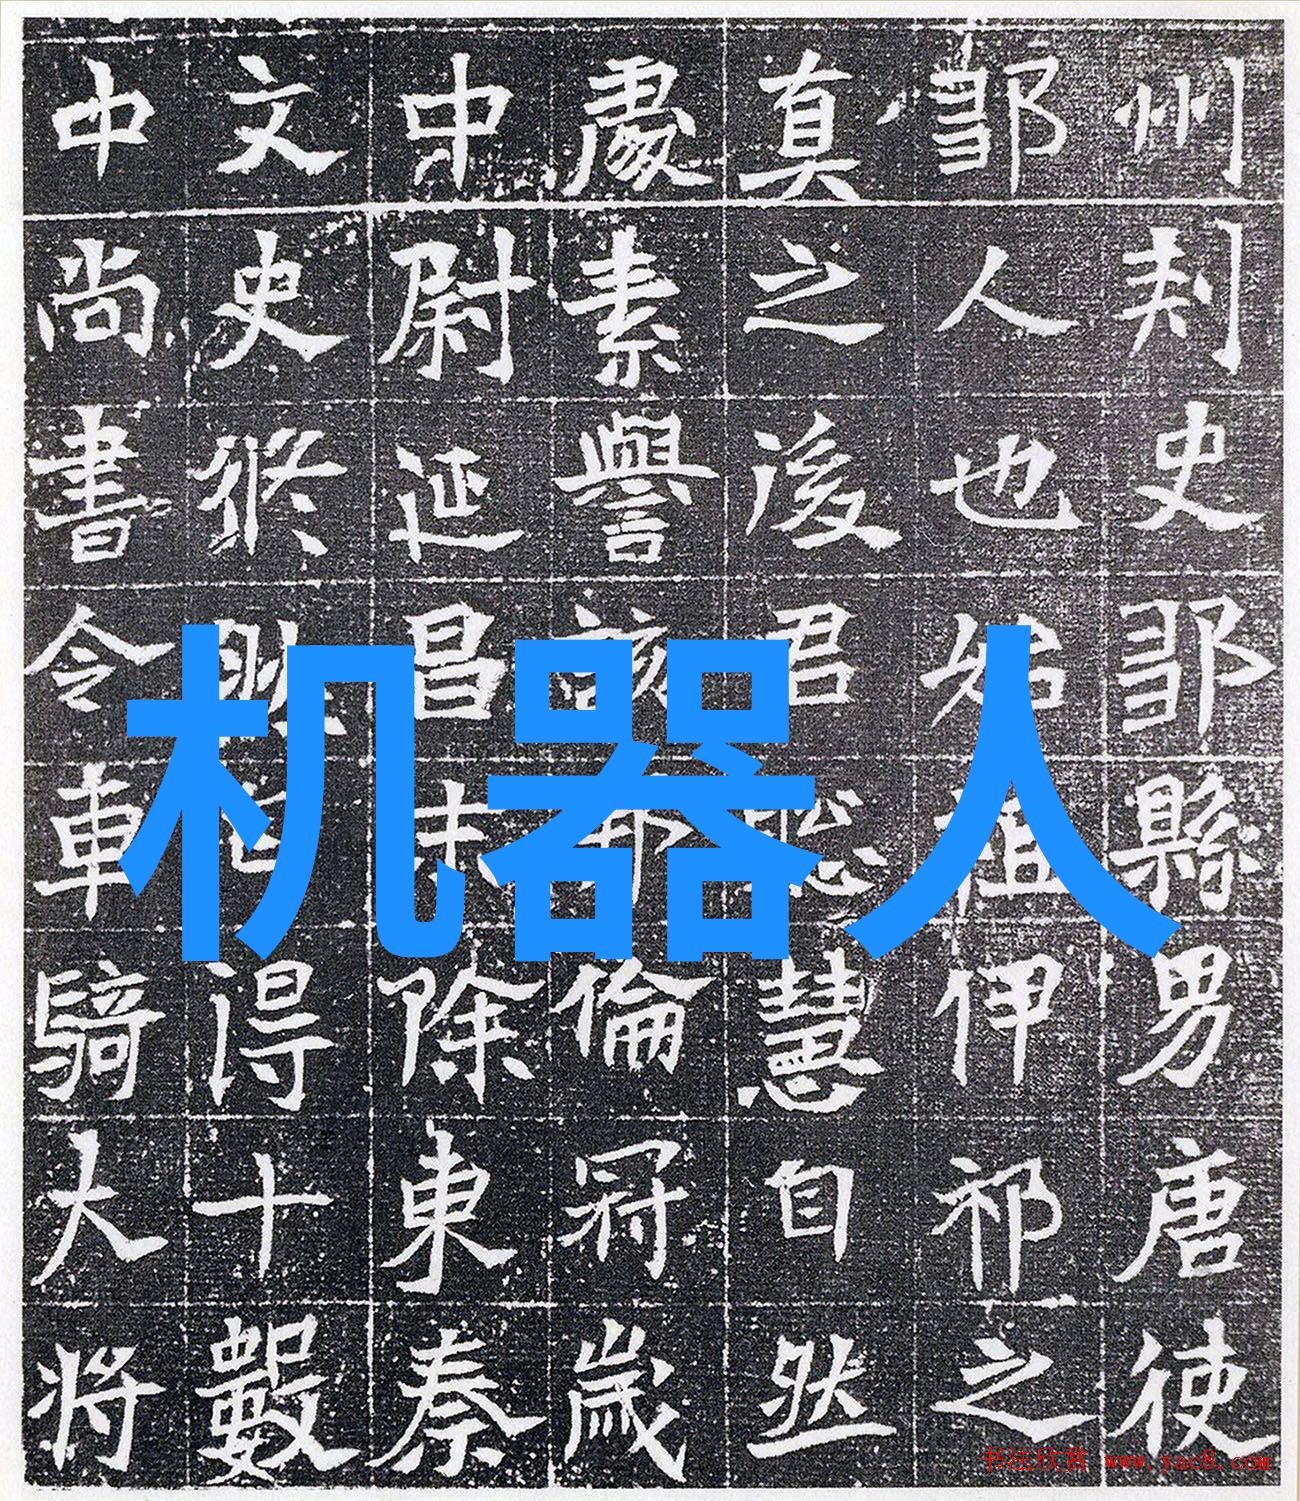 州刾史鄒縣男唐使
鄒人也始祖伊祁之
真之後君聡慧自然
處素譽該邦倫冠歲
中尉延昌末除東秦
文史修得十數
中尚書令車騎大將
机器人
书法欣赏 www.yac8.com